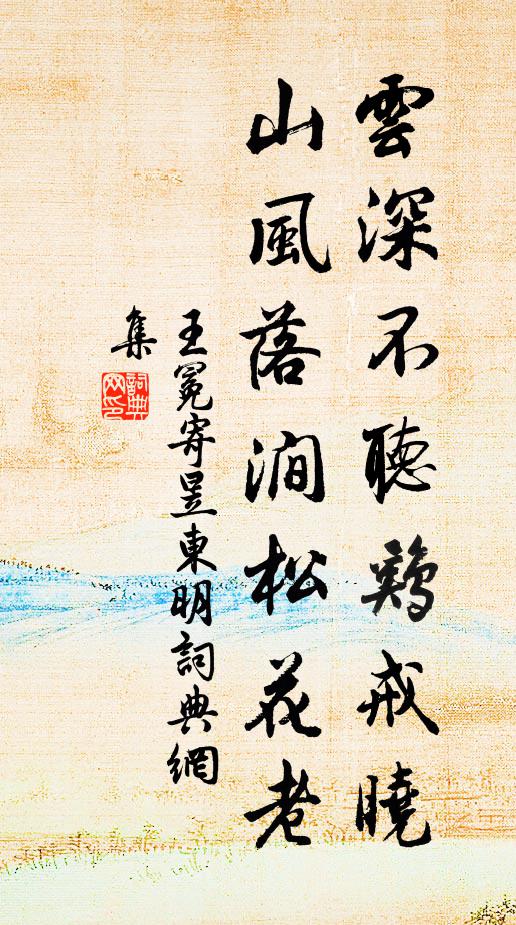 雲深不聽鷄戒曉
山風落澗松花老
王冕寄昱東明詞典網
集
詞典
網印